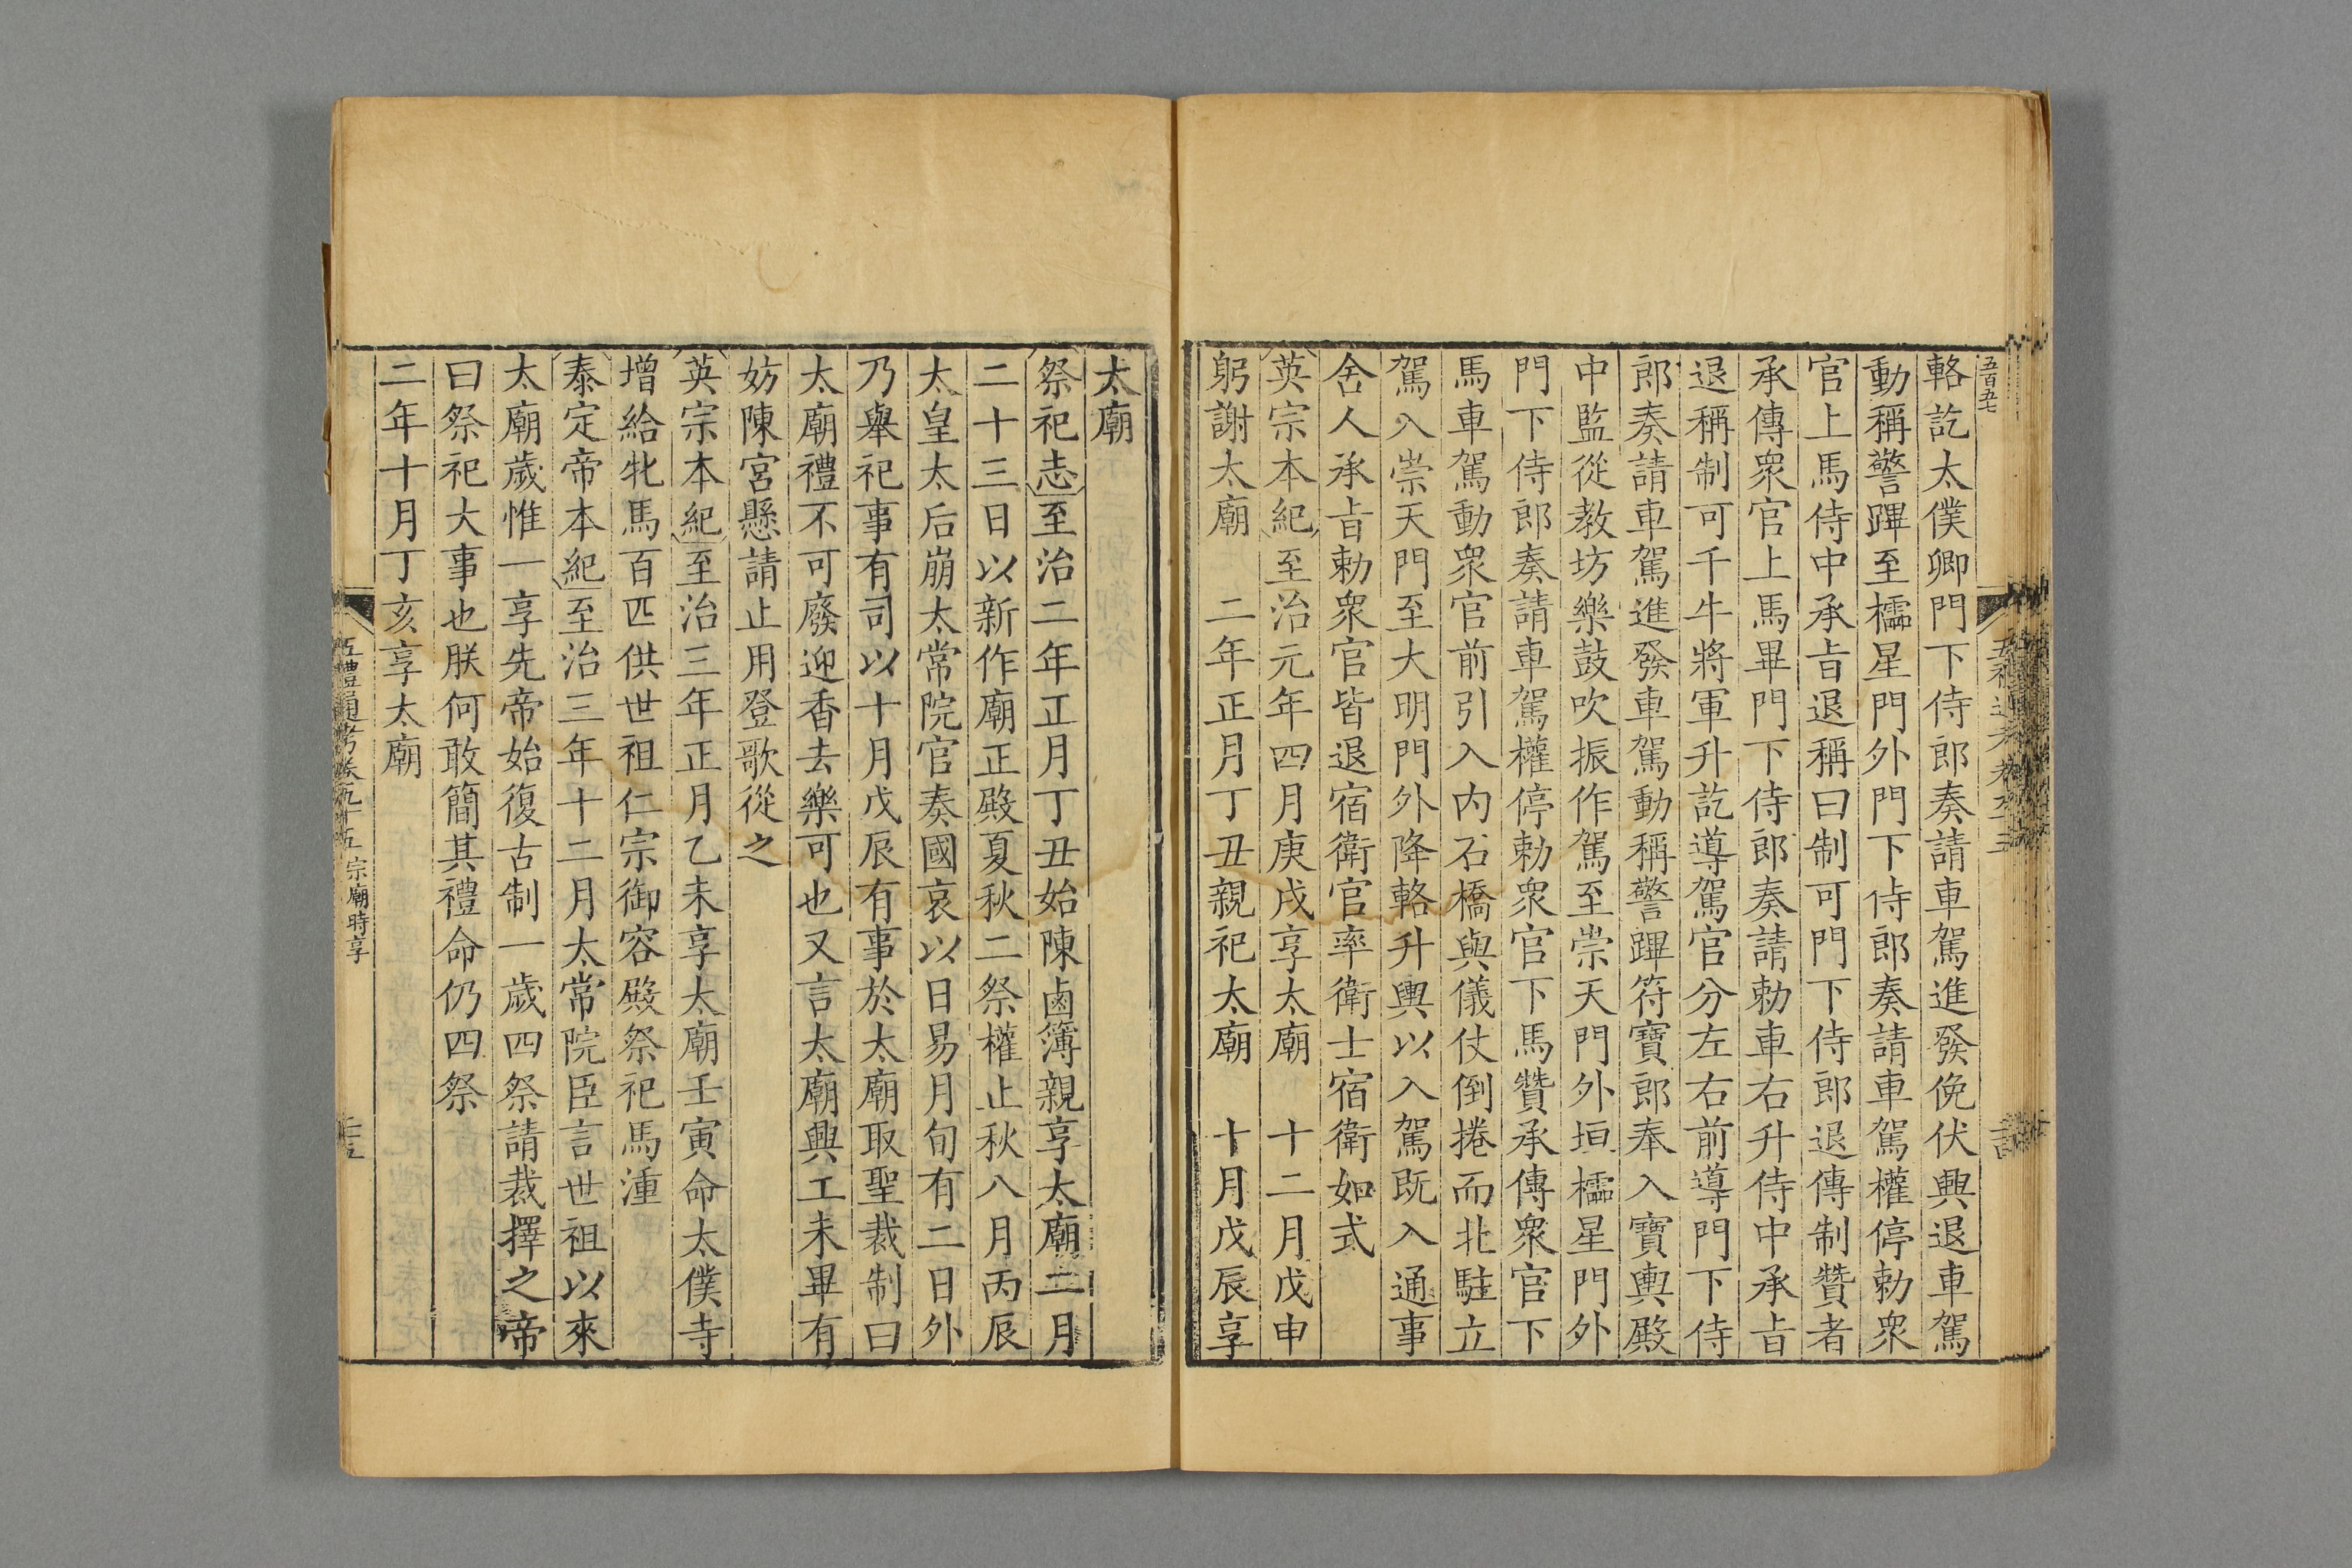 五百五七
輅訖太僕卿門下侍郎奏請車駕進發俛伏興退車駕
動稱警蹕至櫺星門外門下侍郎奏請車駕權停勅衆
官上馬侍中承旨退稱曰制可門下侍郎退傳制贊者
承傳衆官上馬畢門下侍郎奏請勅車右升侍中承旨
退稱制可千牛將軍升訖導駕官分左右前導門下侍
郎奏請車駕進發車駕動稱警蹕符寶郎奉入寶輿殿
中監從教坊樂鼓吹振作駕至崇天門外垣櫺星門外
門下侍郎奏請車駕權停勅衆官下馬贊承傳衆官下
馬車駕動衆官前引入内石橋與儀仗倒捲而北駐立
駕入崇天門至大明門外降輅升輿以入駕既入通事
舍人承旨勅衆官皆退宿衛官率衛士宿衛如式
英宗本紀至治元年四月庚戌享太廟 十二月戊申
躬謝太廟 二年正月丁丑親祀太廟 十月戊辰享
太廟
祭祀志至治二年正月丁丑始陳鹵簿親享太廟三月
二十三日以新作廟正殿夏秋二祭權止秋八月丙辰
太皇太后崩太常院官奏國哀以日易月旬有二日外
乃舉祀事有司以十月戊辰有事於太廟取聖裁制曰
太廟禮不可廢迎香去樂可也又言太廟興工未畢有
妨陳宮懸請止用登歌從之
英宗本紀至治三年正月乙未享太廟壬寅命太僕寺
增給牝馬百匹供世祖仁宗御容殿祭祀馬湩
泰定帝本紀至治三年十二月太常院臣言世祖以來
太廟歲惟一享先帝始復古制一歲四祭請裁擇之帝
曰祭祀大事也朕何敢簡其禮命仍四祭
二年十月丁亥享太廟
五禮通考卷九十五 宗廟時享